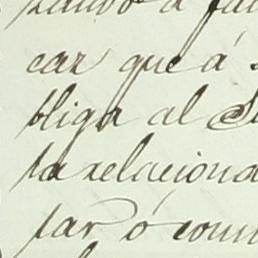 car que á
bliga al
ta relaciona
tar ó com